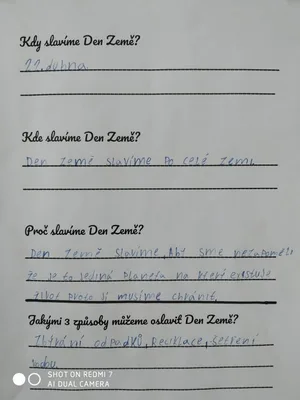 Kdy slavíme Den Země?
22. dubna
Kde slavíme Den Země?
Den Země slavíme po celé zemi.
Proč slavíme Den Země?
Den Země slavíme, aby sme nezapoměli
že je to jediná planeta na které existuje
život proto ji musíme chránit.
Jakými 3 způsoby můžeme oslavit Den Země?
odpadků, Recyklace, šetření
vodou
SHOT ON REDMI 7
AI DUAL CAMERA